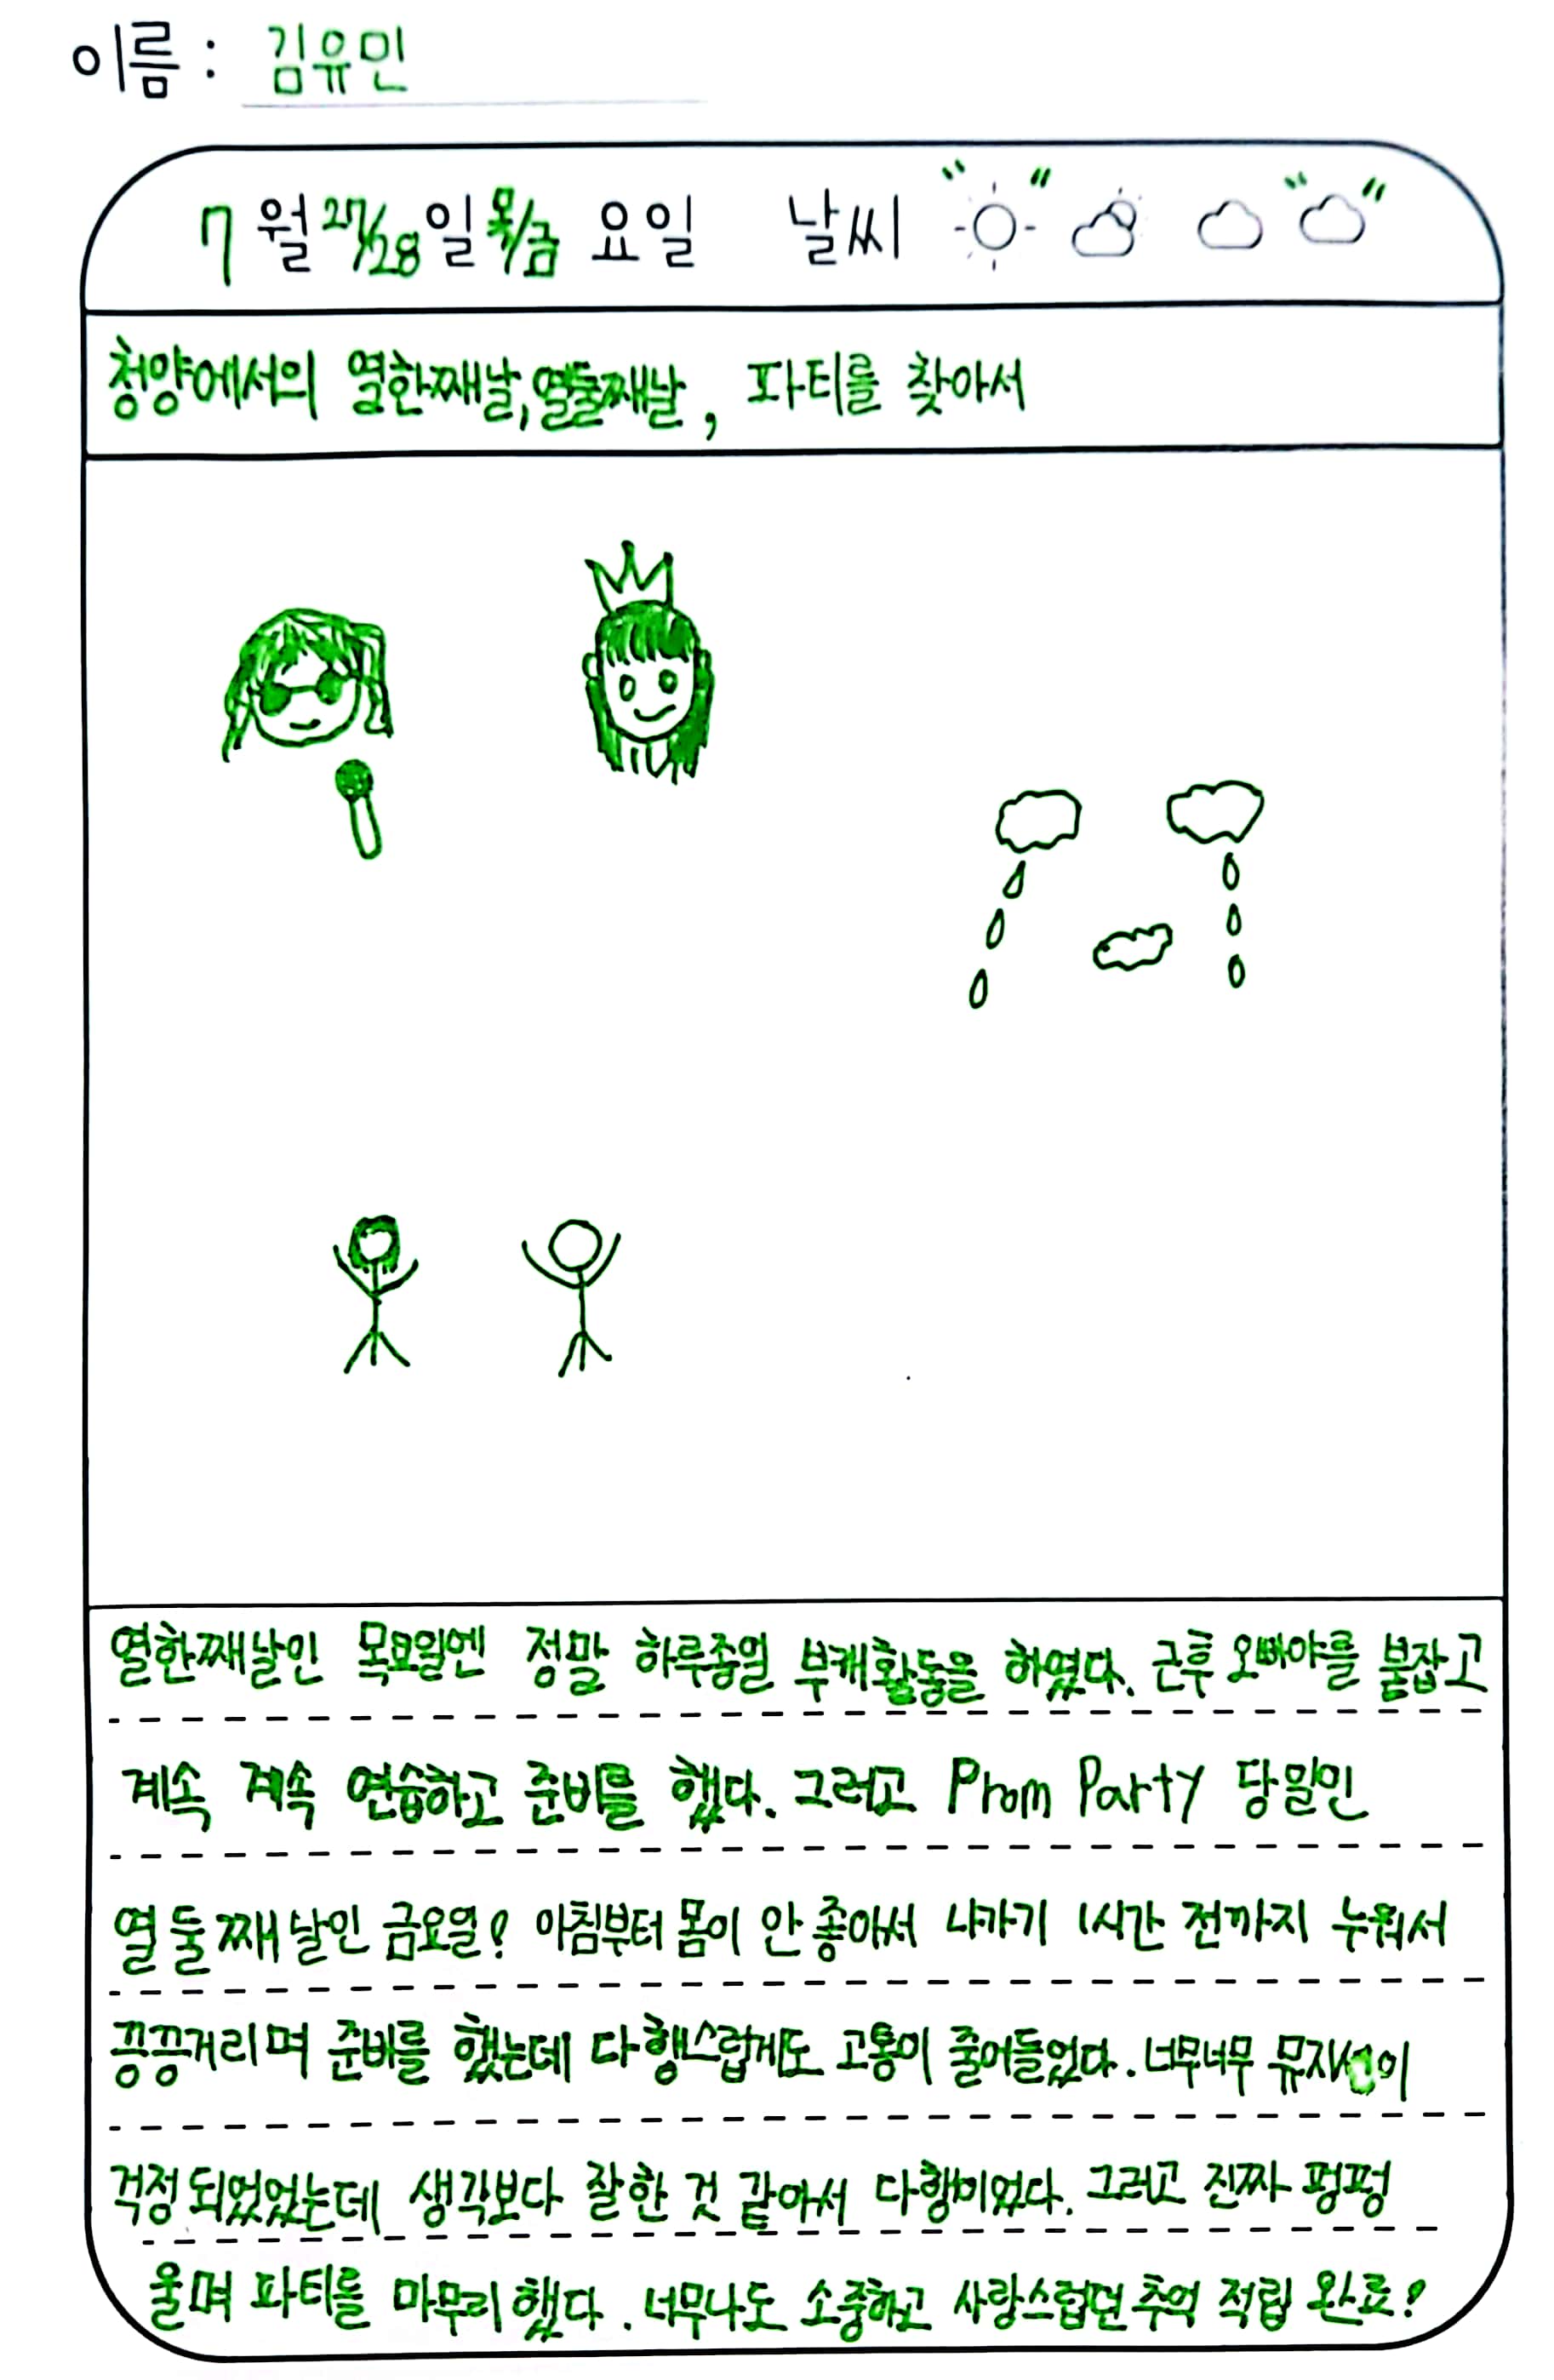 이름 : 김유민
7월 27/28일 목/금 요일 날씨
청양에서의 열한째날, 열둘째날, 파티를 찾아서
열한째날인 목요일엔 정말 하루종일 부캐활동을 하였다. 근후 오빠야를 붙잡고
계속 계속 연습하고 준비를 했다. 그러고 Prom Party 당일인
열둘째날인 금요일? 아침부터 몸이 안 좋아서 나가기 1시간 전까지 누워서
끙끙거리며 준비를 했는데 다행스럽게도 고통이 줄어들었다. 너무너무 뮤지션이
걱정되었었는데 생각보다 잘한 것 같아서 다행이었다. 그러고 진짜 펑펑
울며 파티를 마무리했다. 너무나도 소중하고 사랑스럽던 추억 적립 완료?